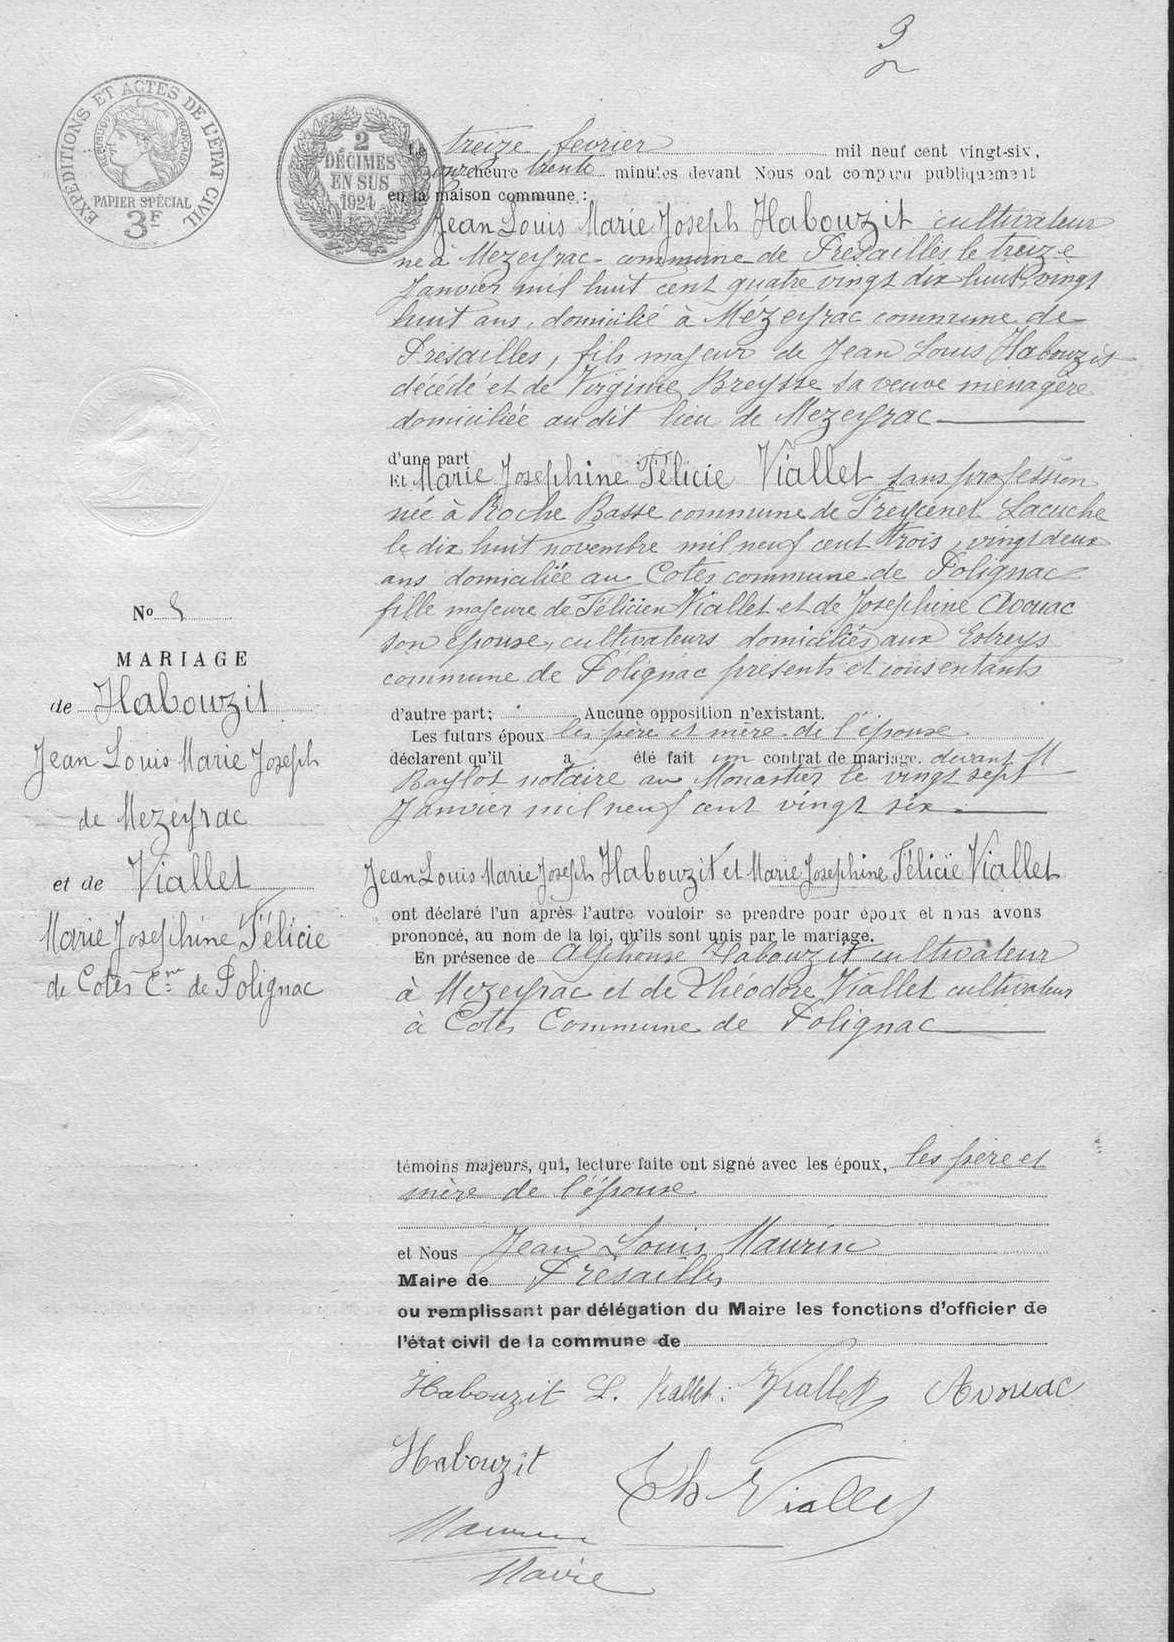 3
EXPÉDITIONS ET ACTES DE L'ÉTAT CIVIL
RÉPUBLIQUE FRANÇAISE
PAPIER SPÉCIAL
3F
2
DÉCIMES
EN SUS
1921
Le treize fevrier mil neuf cent vingt-six,
onze heure trente minutes devant Nous ont comparu publiquement
en la maison commune :
Jean Louis Marie Joseph Habouzit cultivateur
né à Mezeyrac commune de Présailles le treize
Janvier mil huit cent quatre vingt dix huit, vingt
huit ans, domicilié à Mézeyrac commune de
Présailles, fils majeur de Jean Louis Habouzit
décédé et de Virginie Breysse sa veuve ménagère
domiciliée au dit lieu de Mezeyrac
d'une part
Et Marie Josephine Félicie Viallet sans profession
née à Roche Basse commune de Freycenet Lacuche
le dix huit novembre mil neuf cent trois, vingt deux
ans domiciliée au Cotes commune de Polignac
fille majeure de Félicien Viallet et de Josephine Avouac
son épouse, cultivateurs domiciliés aux Estreys
commune de Polignac présents et consentants
d'autre part; Aucune opposition n'existant.
Les futurs époux les père et mère de l'épouse
déclarent qu'il a été fait un contrat de mariage. devant M
Baylot notaire au Monastier le vingt sept
Janvier mil neuf cent vingt six
Jean Louis Marie Joseph Habouzit et Marie Josephine Félicie Viallet
ont déclaré l'un après l'autre vouloir se prendre pour époux et nous avons
prononcé, au nom de la loi, qu'ils sont unis par le mariage.
En présence de Alphonse Habouzit cultivateur
à Mezeyrac et de Théodore Viallet cultivateur
à Cotes Commune de Polignac
témoins majeurs, qui, lecture faite ont signé avec les époux, les père et
mère de l'épouse
et Nous Jean Louis Maurin
Maire de Présailles
ou remplissant par délégation du Maire les fonctions d'officier de
l'état civil de la commune de
Habouzit L. Viallet : Viallet Avouac
Habouzit
Th Viallet
Maurin
Mavie
No 5
MARIAGE
de Habouzit
Jean Louis Marie Joseph
de Mezeyrac
et de Viallet
Marie Josephine Félicie
de Cotes Cne de Polignac